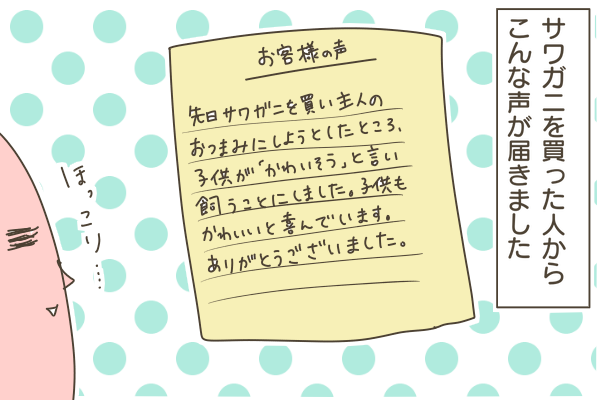 サワガニを買った人から
こんな声が届きました
お客様の声
先日サワガニを買い主人の
おつまみにしようとしたところ、
子供が「かわいそう」と言い
飼うことにしました。子供も
かわいいと喜んでいます。
ありがとうございました。
ほっこり‥‥